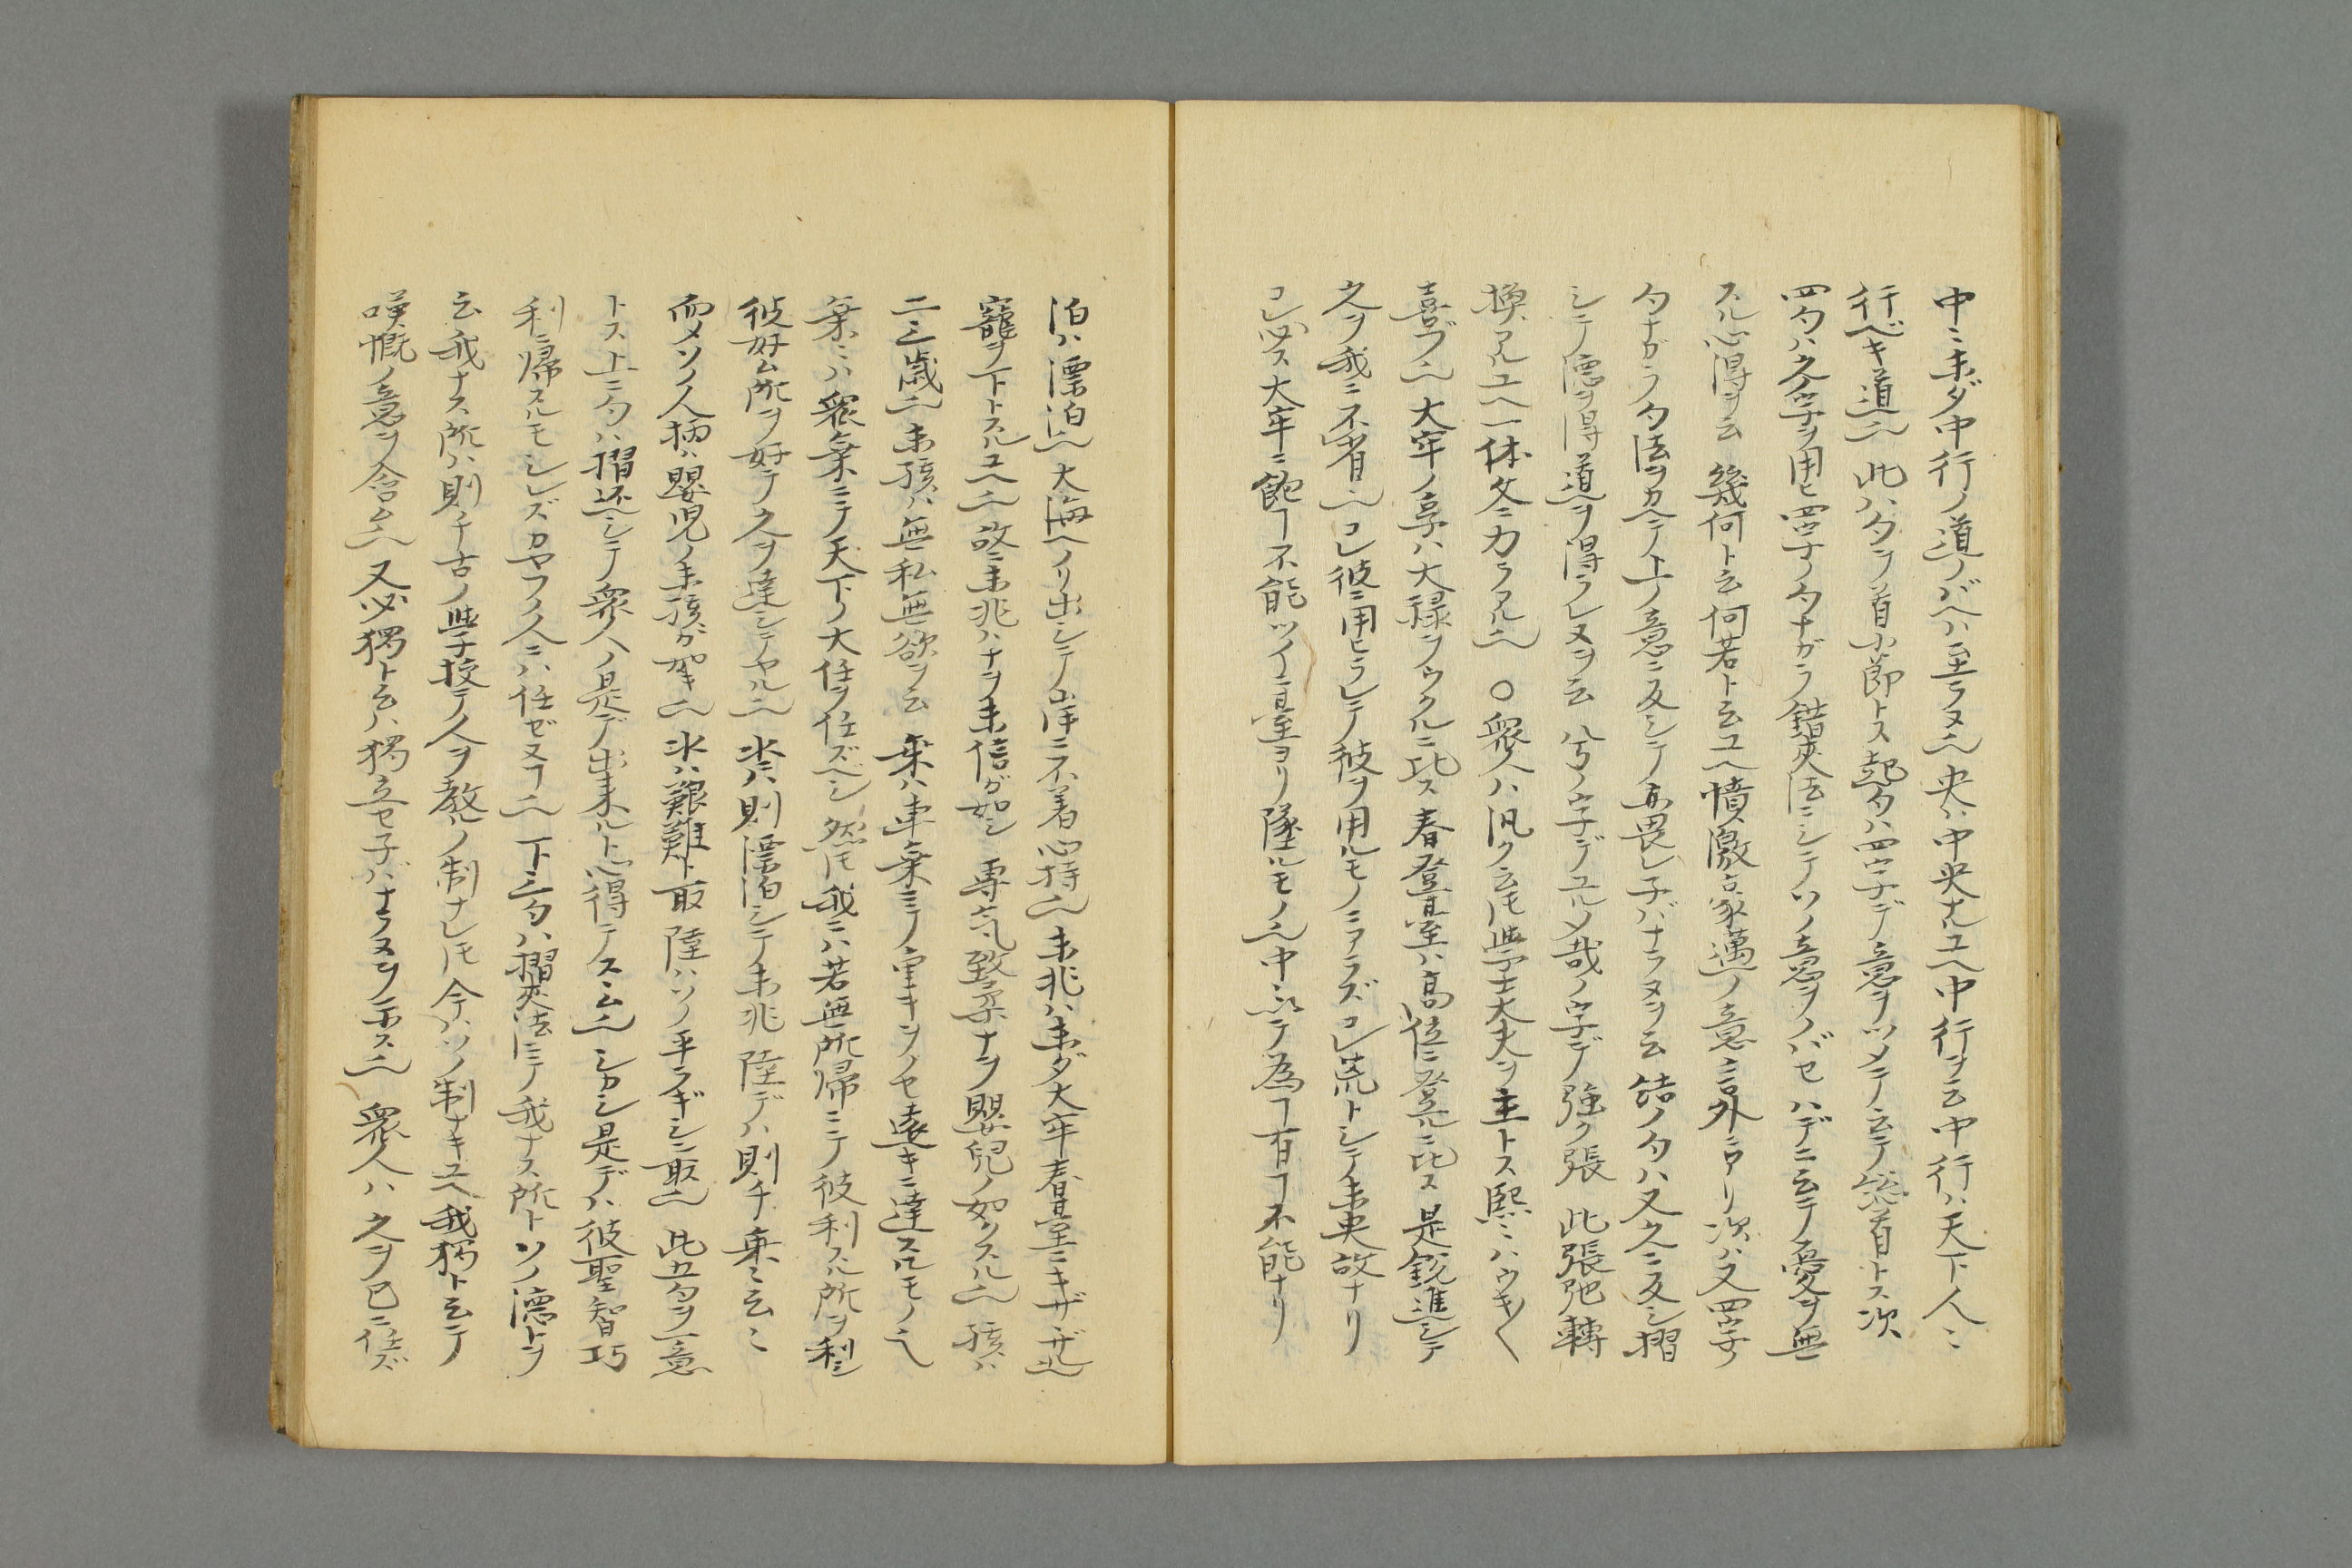 中ニ未ダ中行ノ道ノバヘハ至ラヌ也央ハ中央ナルユヘ中行ヲ云中行ハ天下人ニ
行ベキ道也此ハ句ヲ首小節トス起句ハ四字デ意ヲツメテ云テ総首トス次
四句ハ之字ヲ用ヒ四字ノ句ナガラ錯夾法ニシテソノ意ヲノバセハデニ云テ憂ヲ無
スル心得ヲ云幾何ト云何若ト云ユヘ憤激豪邁ノ意言外ニアリ次ハ又四字ノ
句ナガラ句法ヲカヘテ上ノ意ニ反シテ亦畏レ子バナラヌヲ云結ノ句ハ又之ニ反シ摺
シテ德ヲ得道ヲ得ラレヌヲ云八兮ノ字デユルメ哉ノ字デ強ク張此張弛轉
換アルユヘ一体文ニカラアル也〇衆人ハ汎ク云𪜈學士大夫ヲ主トス熙ニハウキ〱
喜ブ也大牢ノ享ハ大禄ヲウクルニ比ス春登臺ハ高位ニ登ルニ比ス是銳進シテ
之ヲ我ニ不省也コレ彼ニ用ヒラレテ彼ヲ用ルモノニアラズコレ荒トシテ未央故ナリ
コレ必ス大牢ニ飽ヿ不能ツイニ臺ヨリ墜ルモノ也中ニテ為ヿ有ヿ不能ナリ
泊ハ漂泊也大海ヘノリ出シテ山岸ニ不着心持也未兆ハ未ダ大牢春臺ニキザザル也
寵ヲ下トスルユヘ也故ニ未兆ハナヲ未信ガ如シ專气致柔ナヲ嬰兒ノ如クスル也孩ハ
二三歳也未孩ハ無私無欲ヲ云乗ハ車乗ニテ重キヲノセ遠キニ達スルモノ也
乗ニハ衆乗ニテ天下ノ大任ヲ任ズベシ然𪜈我ニハ若無所歸ニテ彼利スル所ヲ利シ
彼好ム所ヲ好テ之ヲ達シテヤル也氺ハ則漂泊シテ未兆陸デハ則チ乗ニ云ニ
而メソノ人柄ハ嬰児ノ未孩ガ如キ也氺ハ艱難ト取陸ハソノ平ラギシニ取也此五句ヲ一意
トス上ニ句ハ摺返ヘシテ衆人ノ是デ出来ルト心得テスム也シカシ是デハ彼聖智巧
利ニ歸スルモシレズカヤフノ人ニハ任ゼヌヿ也下ニ句ハ摺夾法ニテ我ナス所トソノ德トヲ
云我ナス所ハ則チ古ノ學校テ人ヲ教ルノ制ナレ𪜈今ハソノ制ナキユヘ我獨ト云テ
嘆慨ノ意ヲ含ム也又必獨ト云ハ獨立セ子バナラヌヲ示ス也衆人ハ之ヲ己ニ任ズ